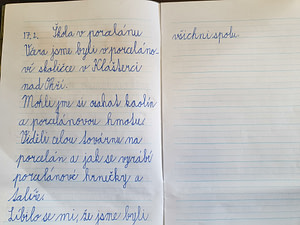 17. 2. Škola v porcelánu
Včera jsme byli v porceláno-
vé školičce v Klášterci
nad Ohří.
Mohli jsme si osahat kaolín
a porcelánovou hmotu.
Viděli celou továrnu na
porcelán a jak se vyrábí
porcelánové hrnečky a
talíře.
Líbilo se mi, že jsme byli
všichni spolu.